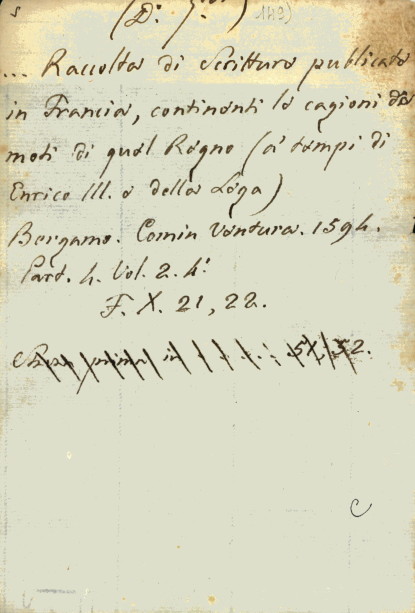 149)
... Raccolta di Scritture publicate
in Francia, continenti le cagioni de
moti di quel Regno (a' tempi di
Enrico III. e della Lega)
Bergamo. Comin Ventura. 1594.
Part. 4. Vol. 2. 4.º
F. X. 21, 22.
52.
C